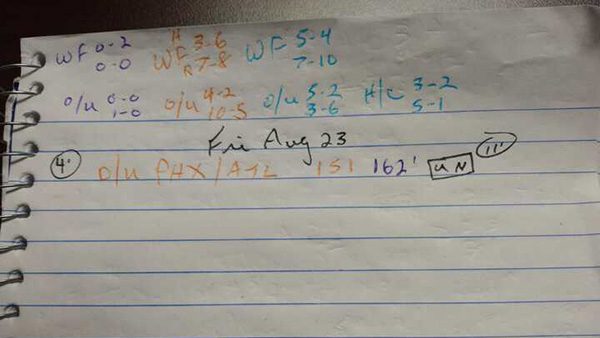 WF 0-2 H 3-6 WF 5-4
0-0 WF R 7-8 7-10
O/U 0-0 O/U 4-2 O/U 5-2 H/C 3-2
1-0 10-5 3-6 5-1
Fri Aug 23
4' O/U PHX/ATL 151 162' UN 11'